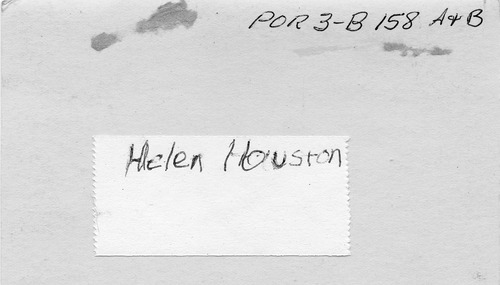 POR 3-B 158 A+B
Helen Houston